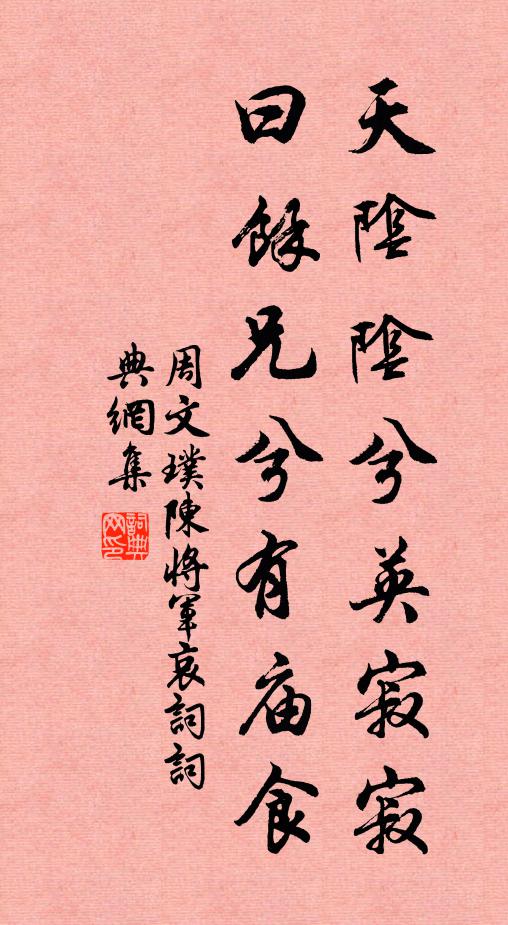 天陰陰兮英寂寂
曰餘兄兮有庙食
周文璞陳將軍哀詞詞
典網集
詞典網印